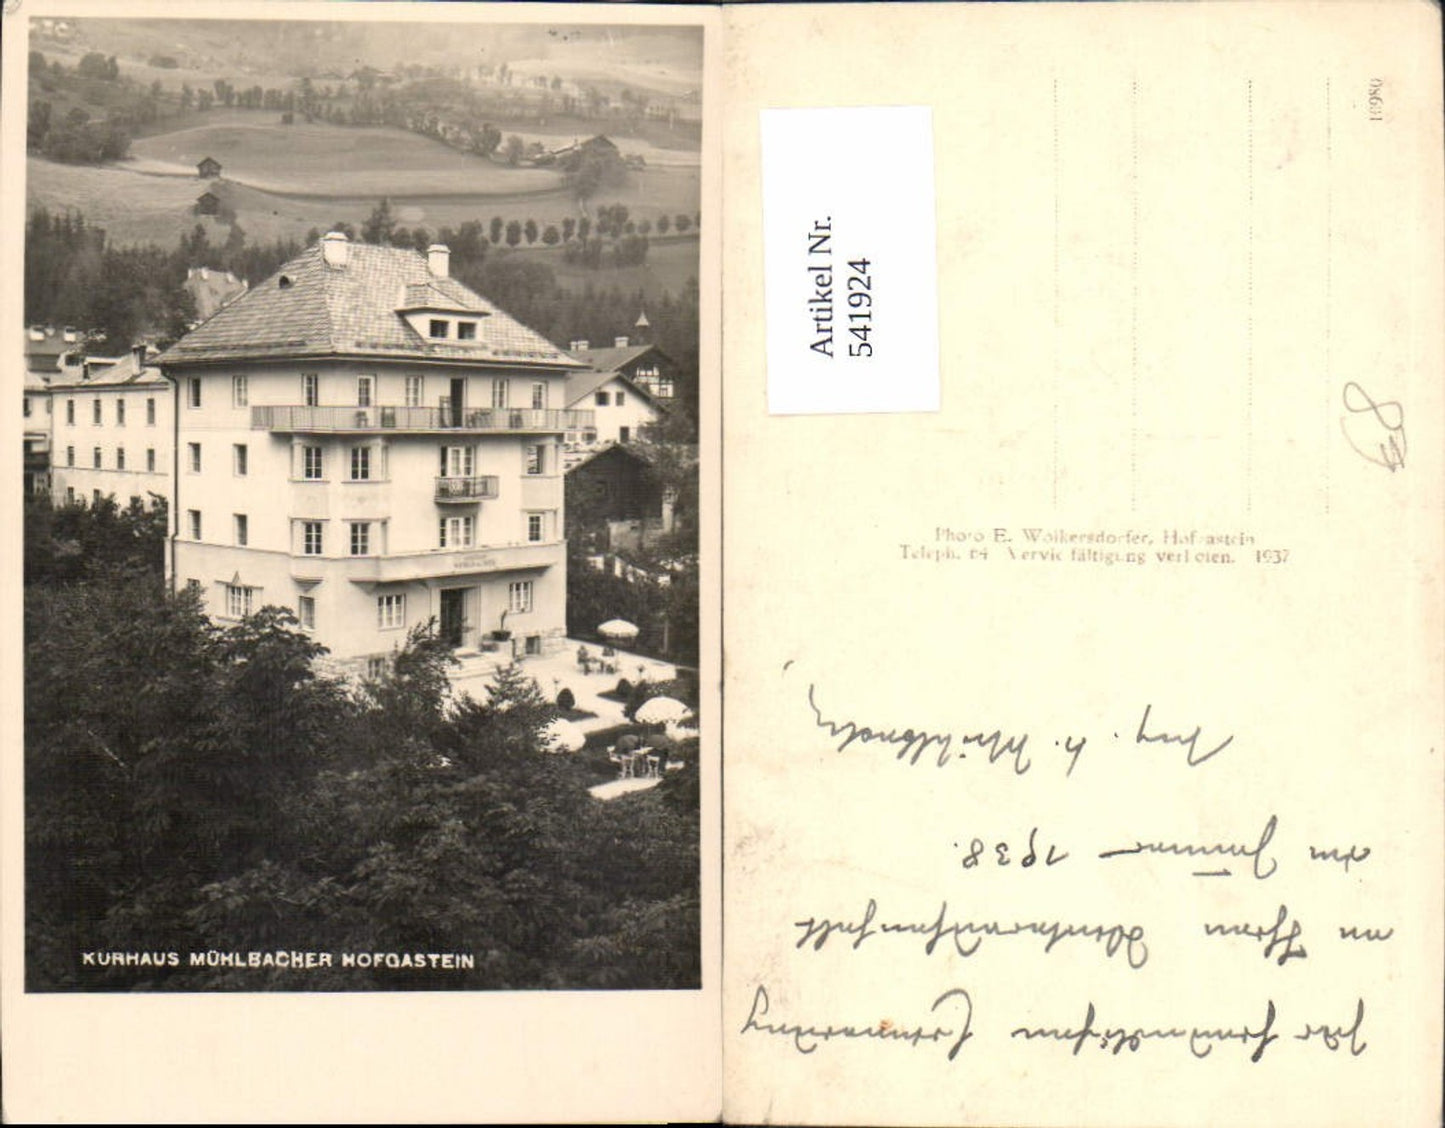 KURHAUS MÜHLBACHER HOFGASTEIN
Artikel Nr.
541924
Photo E. Wolkersdorfer, Hofgastein
Teleph. 64 Vervielfältigung verboten. 1937
Zur freundlichen Erinnerung
an Ihren Winteraufenthalt
im Januar 1938.
Mühlbacher